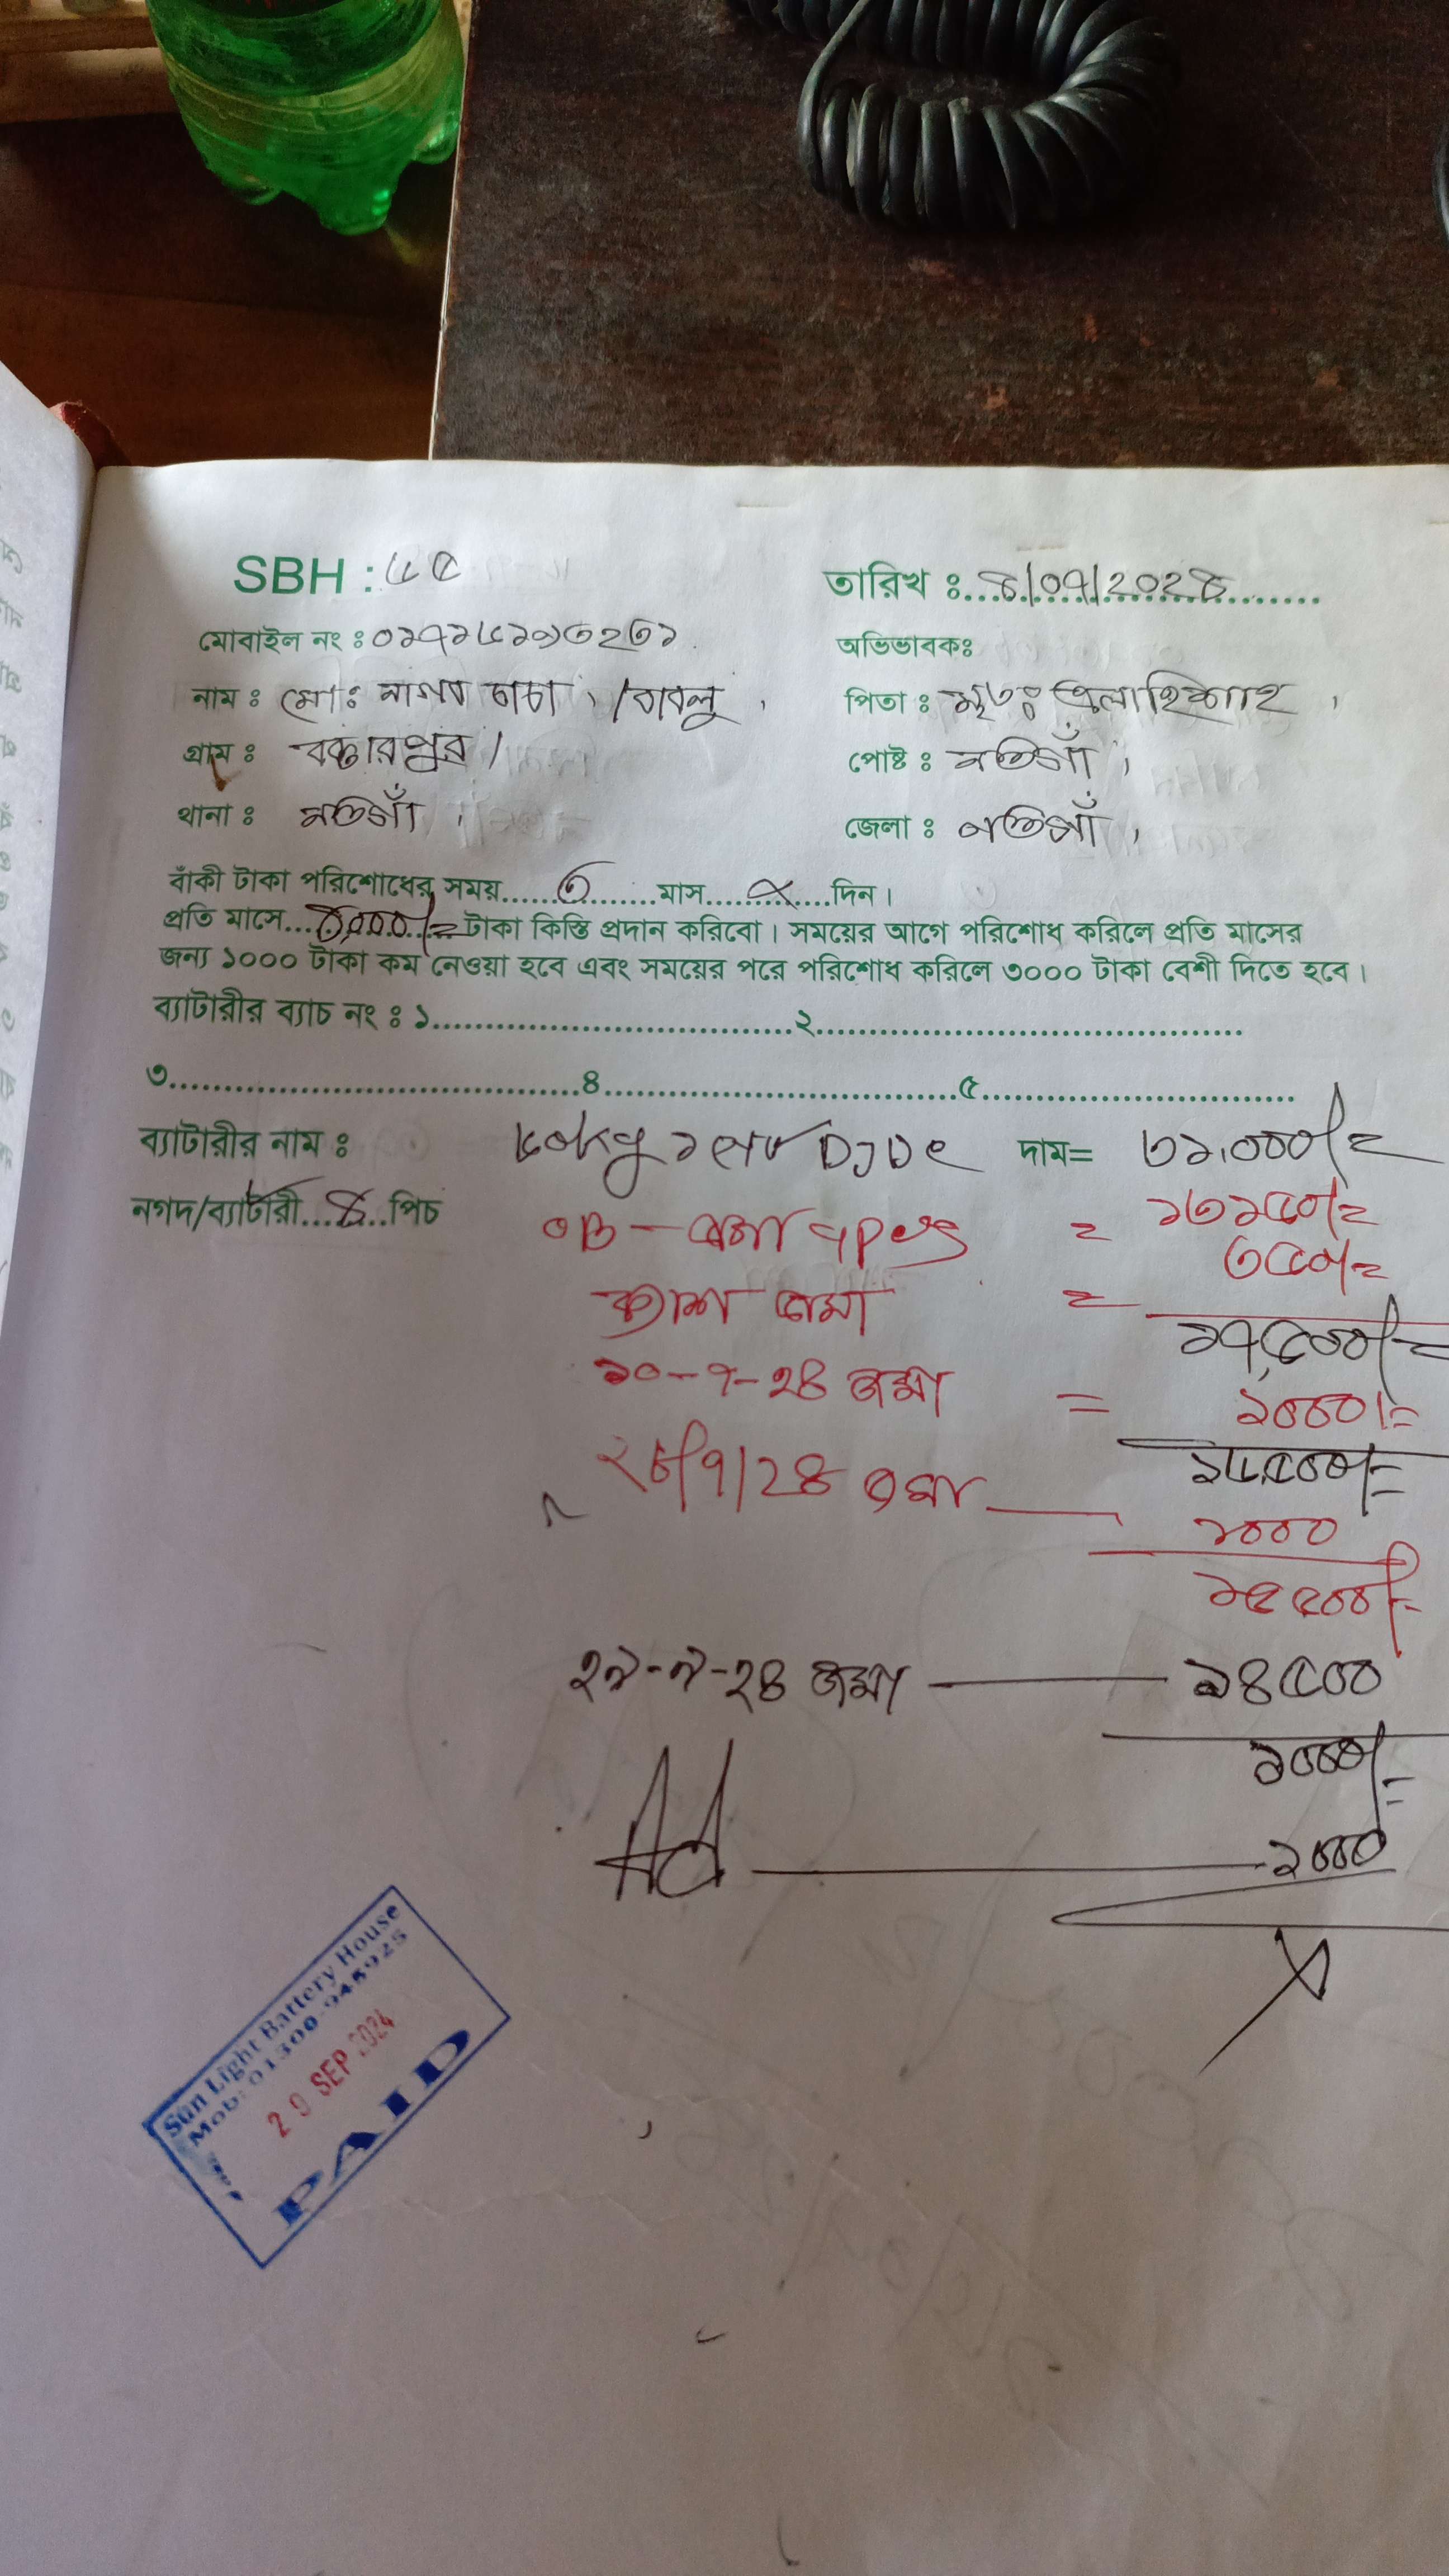 SBH : ৬৫
তারিখ ঃ 8/09/2028
মোবাইল নং ঃ
অভিভাবকঃ
নাম ঃ মোঃ চাচা । /বাবলু ,
পিতা ঃ মৃতঃ
গ্রাম ঃ বক্তারপুর /
পোষ্ট ঃ নওগাঁ ।
থানা ঃ নওগাঁ ।
জেলা ঃ নওগাঁ ।
বাঁকী টাকা পরিশোধের সময়......৩......মাস......×......দিন ।
প্রতি মাসে... টাকা কিস্তি প্রদান করিবো । সময়ের আগে পরিশোধ করিলে প্রতি মাসের
জন্য ১০০০ টাকা কম নেওয়া হবে এবং সময়ের পরে পরিশোধ করিলে ৩০০০ টাকা বেশী দিতে হবে ।
ব্যাটারীর ব্যাচ নং ঃ ১....................২....................
৩....................৪....................৫....................
ব্যাটারীর নাম ঃ দাম= ৩১,০০০/=
নগদ/ব্যাটারী...৪...পিচ OB - = ১৩১৫০/=
ক্যাশ জমা = ৩৫০/=
১৭,৫০০/=
১০-৭-২৪ জমা = ১০০০/=
১৬,৫০০/=
জমা ১০০০
১৫৫০০/=
২৯-৯-২৪ জমা ১৪৫০০
১০০০/=
১০০০
Sun Light Battery House
Mob: 01300-948925
29 SEP 2024
PAID